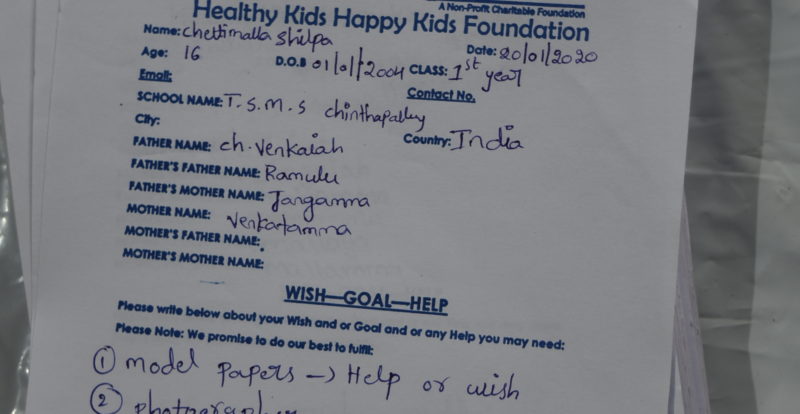 A Non-Profit Charitable Foundation
Healthy Kids Happy Kids Foundation
Name: chettimalla shilpa Date: 20/01/2020
Age: 16 D.O.B 01/01/2004 CLASS: 1st year
Email: Contact No.
SCHOOL NAME: T.S.M.S chinthapalley
City: Country: India
FATHER NAME: ch. Venkaiah
FATHER'S FATHER NAME: Ramulu
FATHER'S MOTHER NAME: Jangamma
MOTHER NAME: Venkatamma
MOTHER'S FATHER NAME:
MOTHER'S MOTHER NAME:
WISH—GOAL—HELP
Please write below about your Wish and or Goal and or any Help you may need:
Please Note: We promise to do our best to fulfil:
① model papers → Help or wish
②